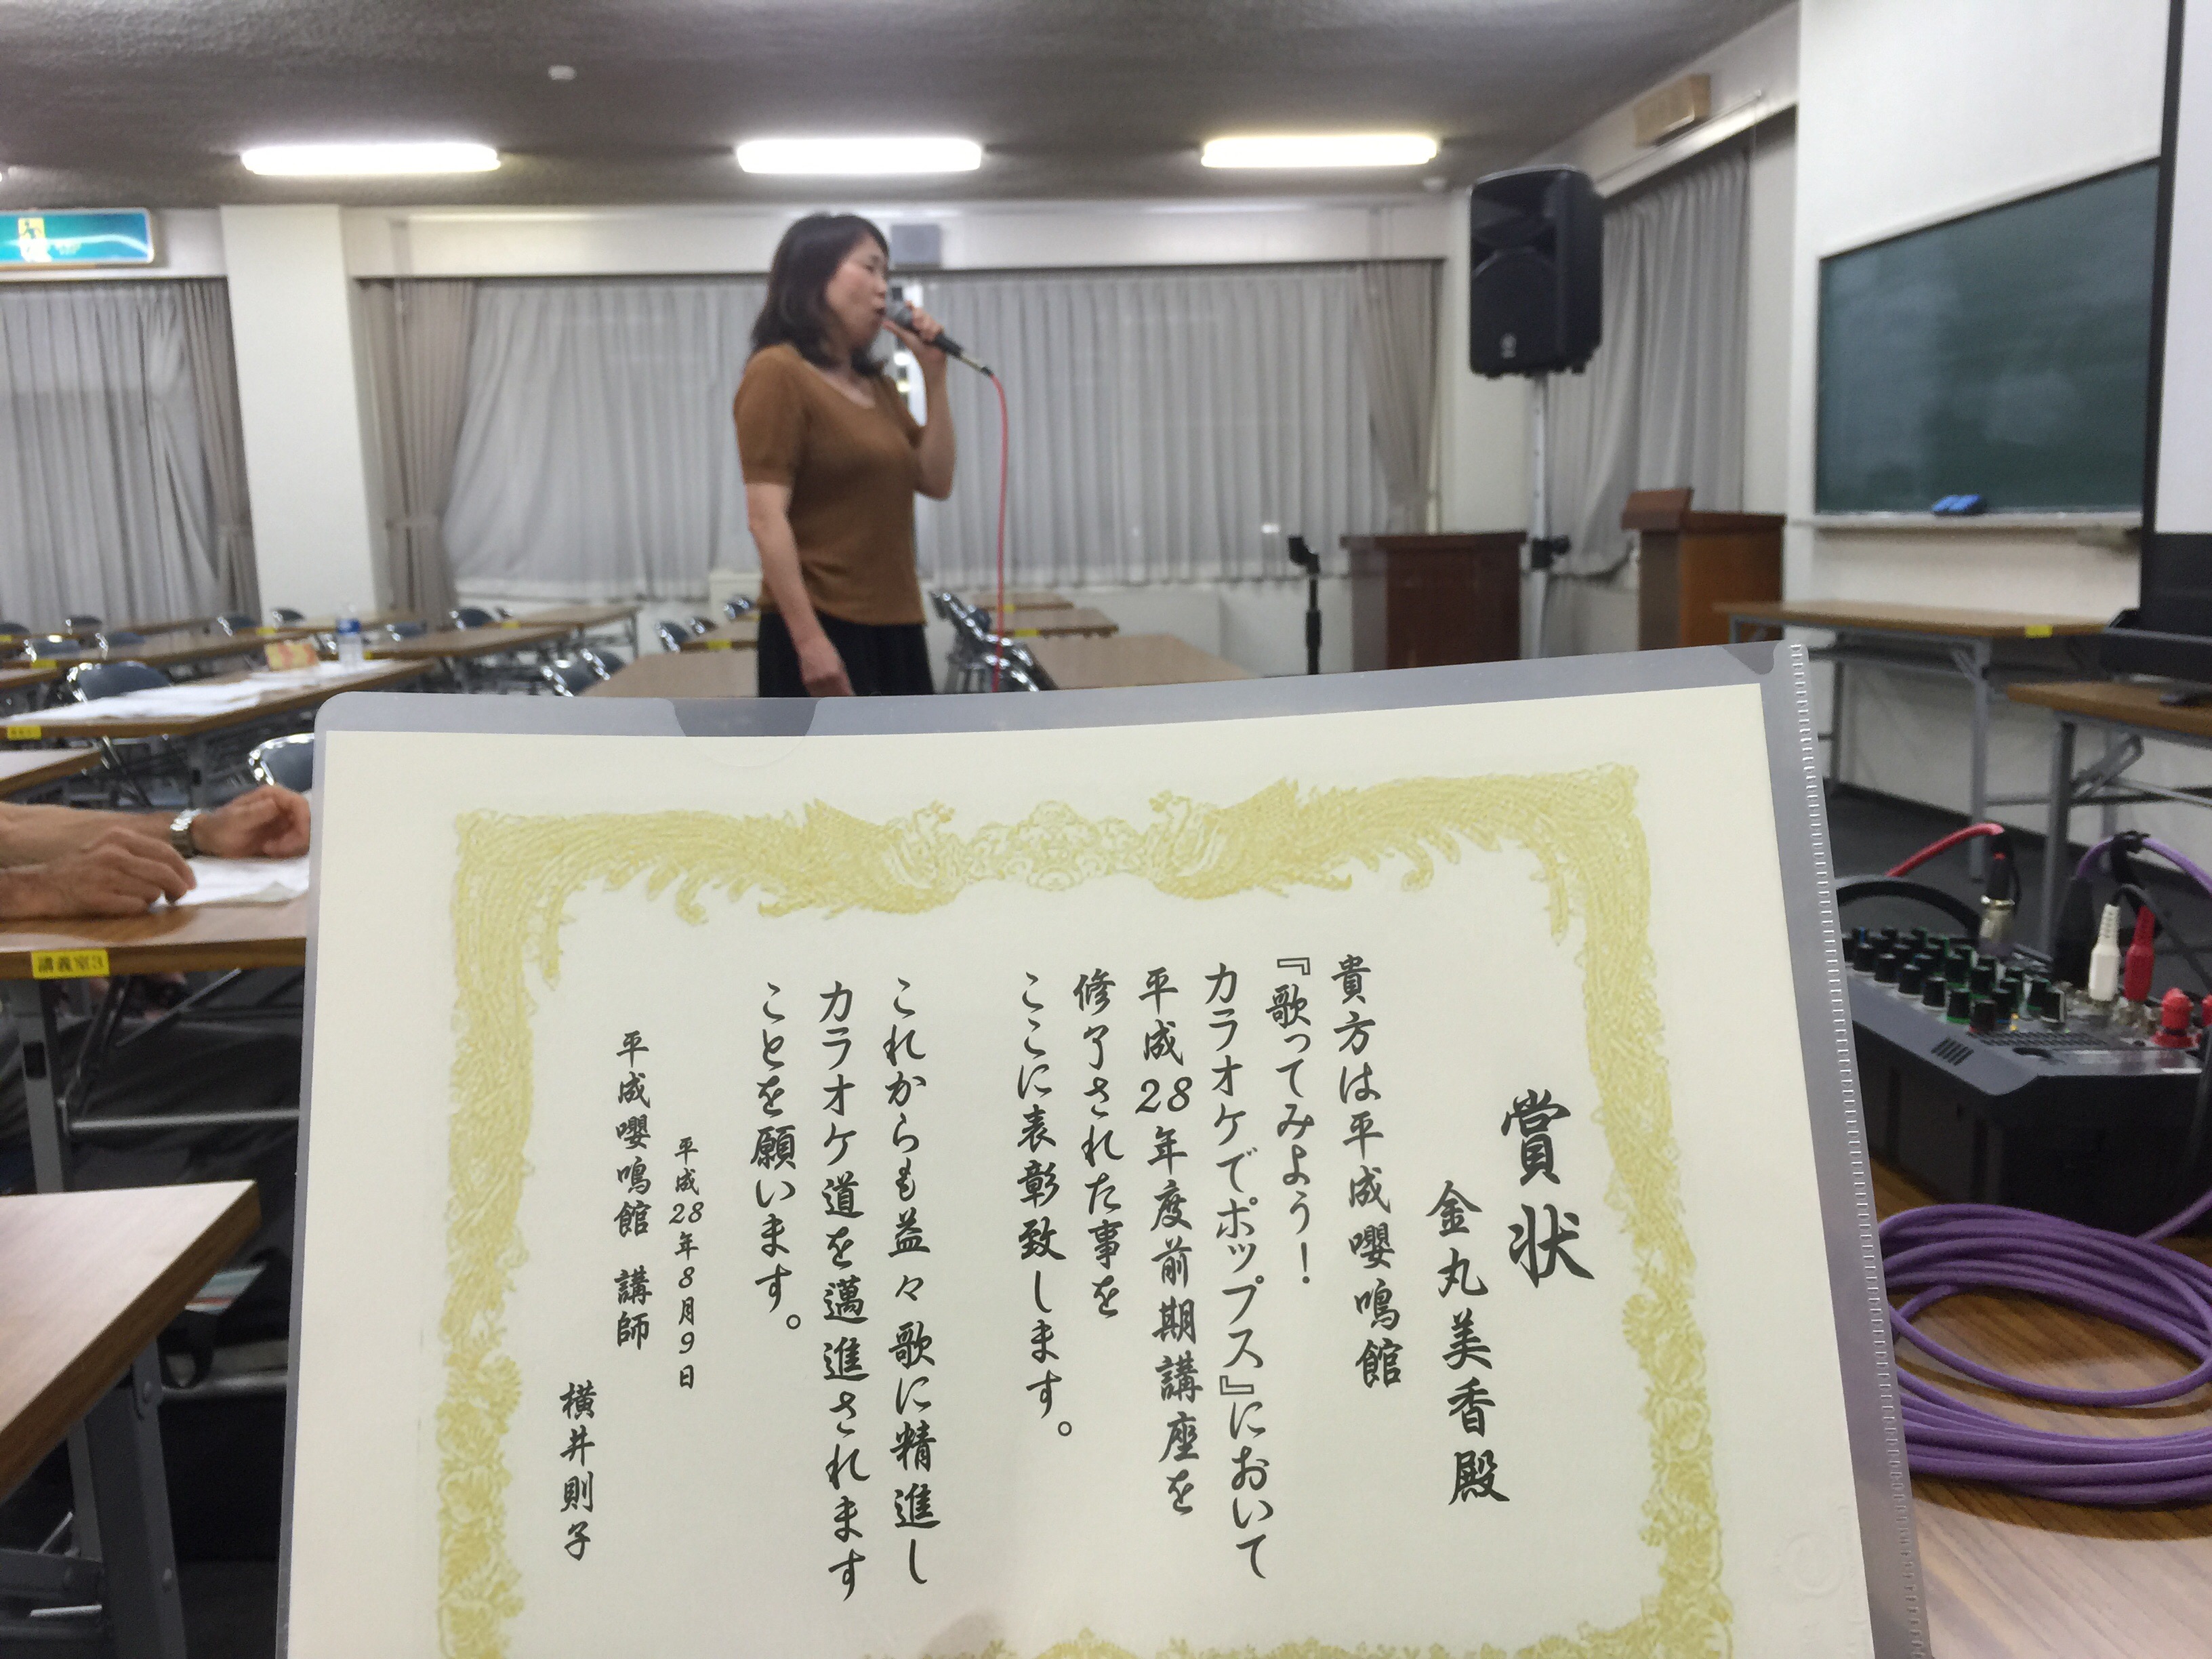 賞状
金丸美香殿
貴方は平成嚶鳴館
『歌ってみよう！
カラオケでポップス』において
平成28年度前期講座を
修了された事を
ここに表彰致します。
これからも益々歌に精進し
カラオケ道を邁進されます
ことを願います。
平成28年8月9日
平成嚶鳴館 講師
横井則子
講義室3